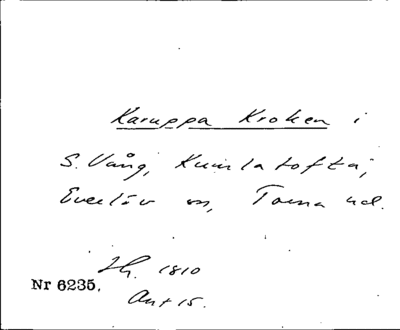 Karuppa Kroken i
S. Vång, Kumlatofta,
Everlöv sn, Torna hd.
Jh. 1810
Nr 6235.
Ant 15.